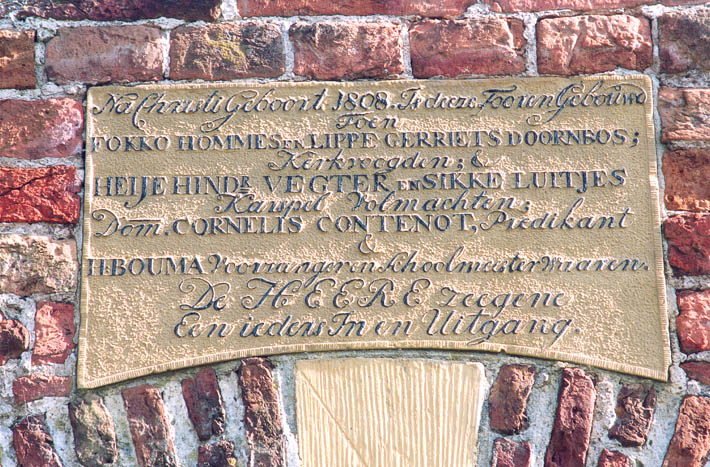 Na Christi Geboort 1808. Is deese Tooren Gebouwt
Toen
FOKKO HOMMES en LIPPE GERRIETS DOORNBOS;
Kerkvoogden; &
HEIJE HINDR VEGTER, en SIKKE LUITJES
Karspel Volmachten;
Dom. CORNELIS CONTENOT, Predikant
&
H. BOUMA Voorzanger en Schoolmeester waaren.
De HEERE zeegene
Een ieders In en Uitgang.